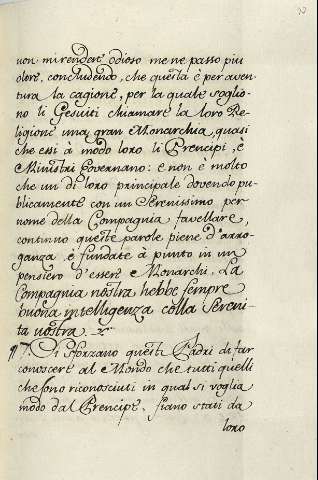 non mi rendere odioso me ne passo piu
oltre, concludendo, che questa è per aven
tura la cagione, per la quale soglio-
no li Gesuiti chiamare la loro Re-
ligione una gran Monarchia, quasi
che essi à modo loro li Prencipi, è
Ministri Governano: e non è molto
che un di loro principale dovendo pu-
blicamente con un Serenissimo per
nome della Compagnia favellare,
cominciò queste parole piene d'arro-
ganza, e fundate à punto in un
pensiero d'essere Monarchi, La
Compagnia nostra hebbe sempre
buona intelligenza colla Sereni-
tà nostra.
Si sforzano questi Padri di far
conoscere al Mondo che tutti quelli
che sono riconosciuti in qual si voglia
modo dal Prencipe, siano stati da
loro